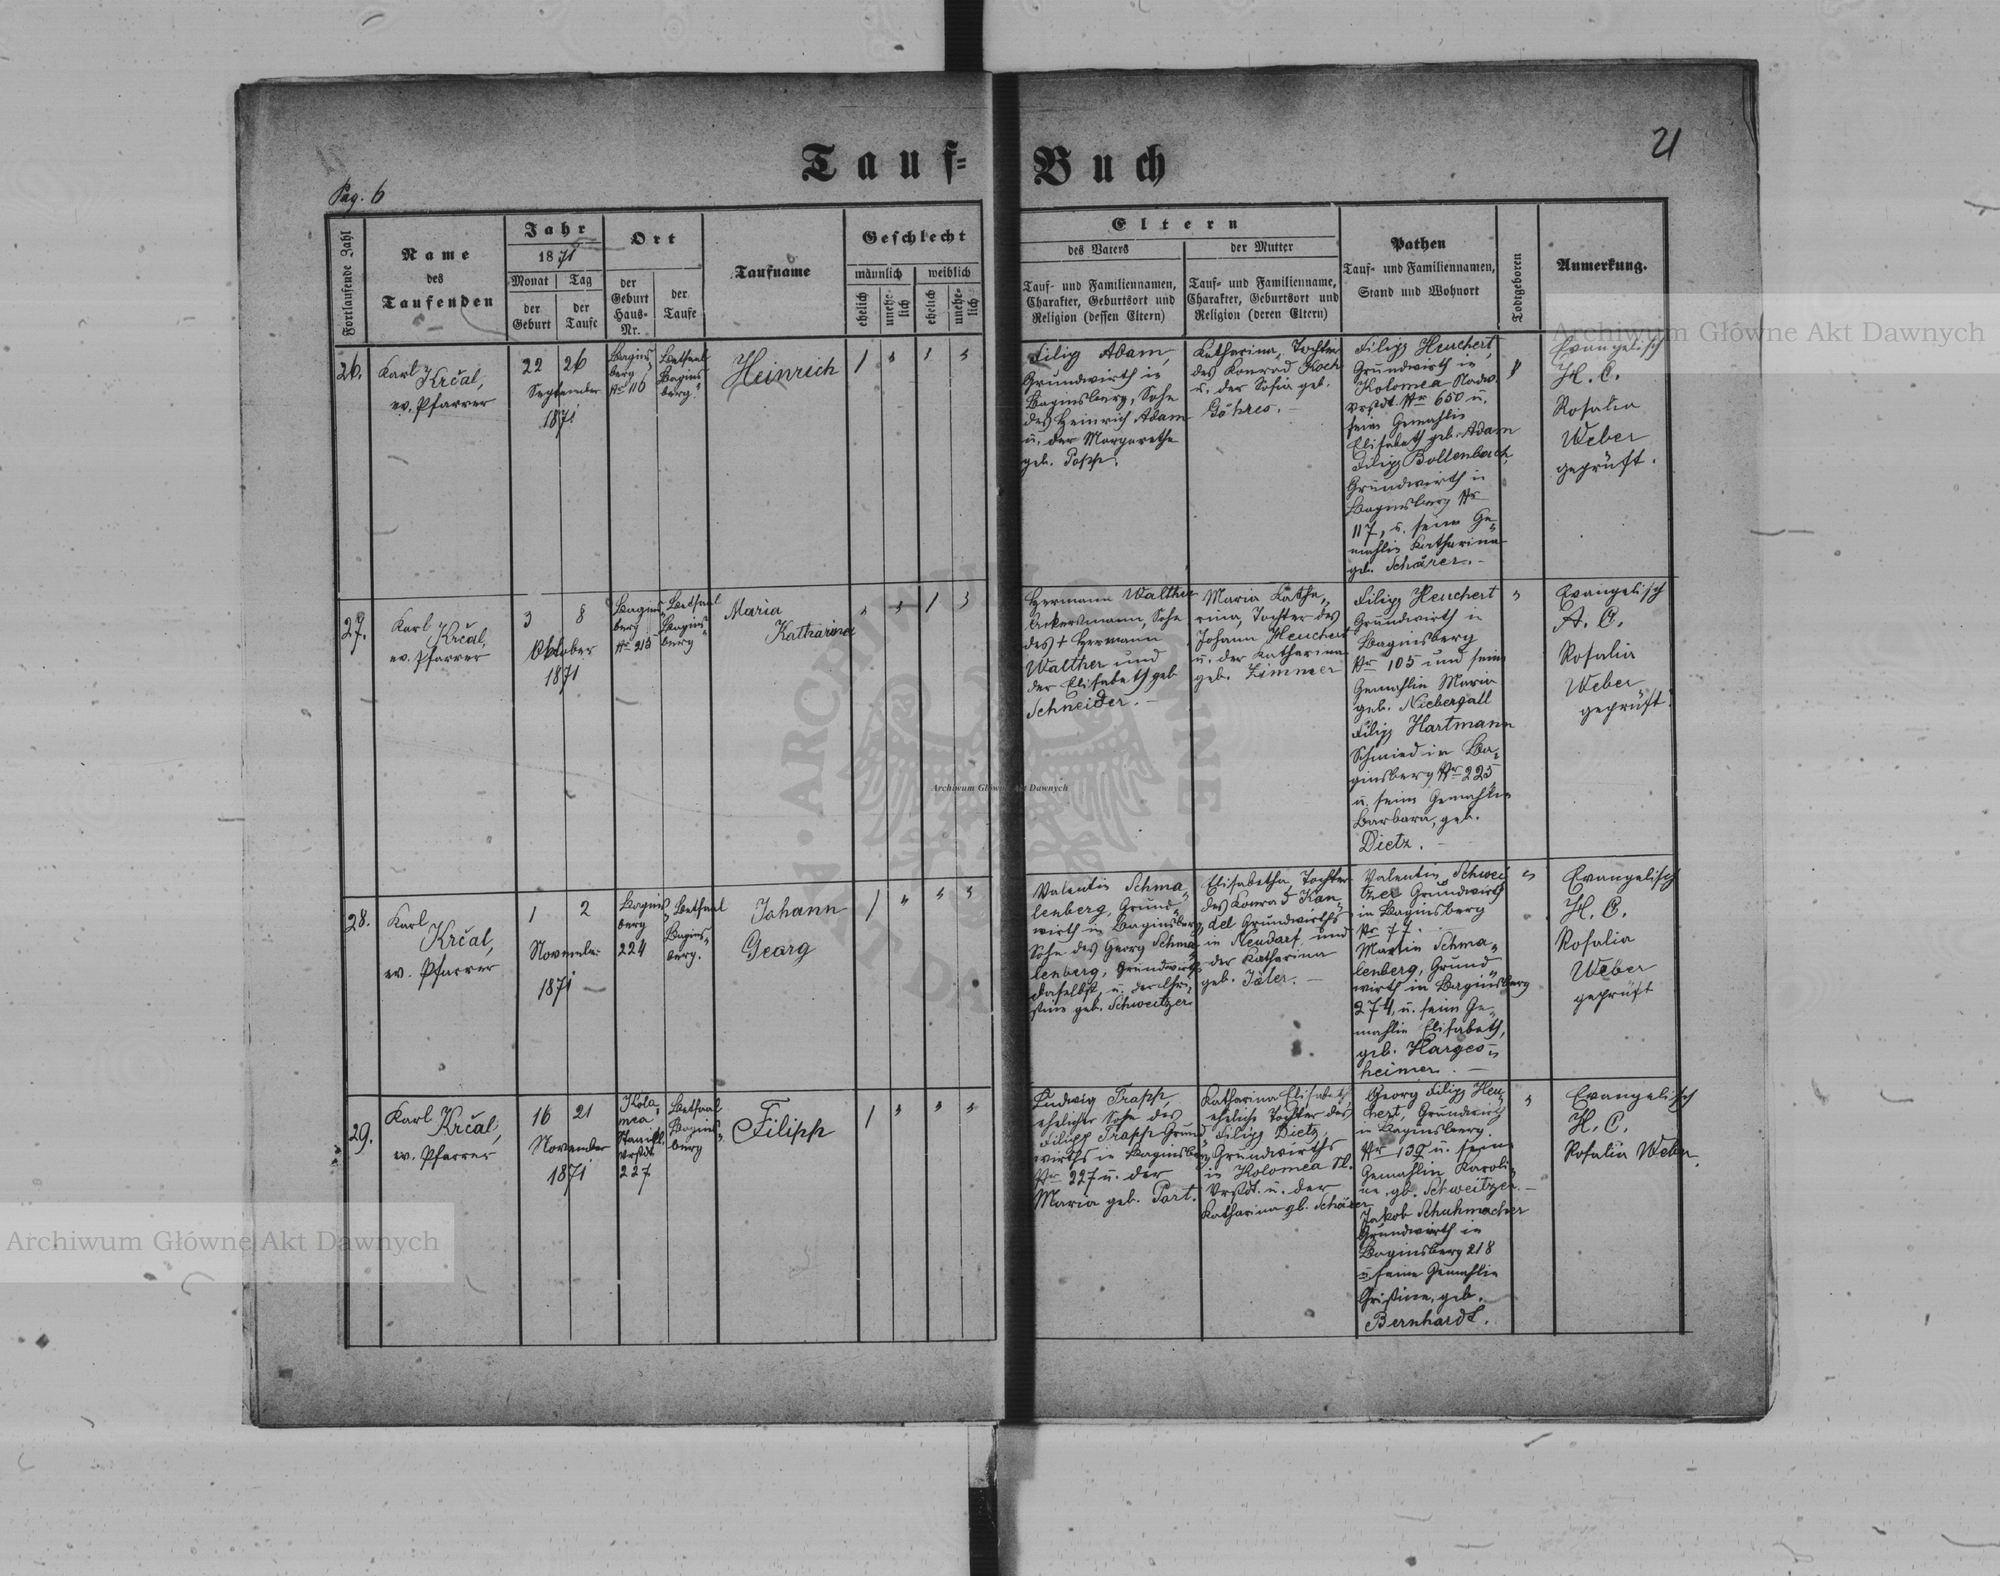 Tauf-Buch
21
Pag. 6
Fortlaufende Zahl
Name
des
Taufenden
Jahr
1871
Monat
Tag
der
Geburt
der
Taufe
Ort
der
Geburt
Haus-
Nr.
der
Taufe
Taufname
Geschlecht
männlich
weiblich
ehelich
unehe-
lich
ehelich
unehe-
lich
Eltern
des Vaters
Tauf- und Familiennamen,
Charakter, Geburtsort und
Religion (dessen Eltern)
der Mutter
Tauf- und Familienname,
Charakter, Geburtsort und
Religion (deren Eltern)
Pathen
Tauf- und Familiennamen,
Stand und Wohnort
Todtgeboren
Anmerkung.
26.
Karl
Krčal,
ev. Pfarrer
22 26
September
1871
Bagins
berg
Nr 116
Bethsaal
Bagins
berg.
Heinrich
1 " 1 "
Filipp Adam,
Grundwirth in
Baginsberg, Sohn
des Heinrich Adam
u. der Margarethe
geb. Popp.
Katharina, Tochter
des Konrad Koch
u. der Sofia geb.
Göhres.
Filipp Heuchert,
Grundwirth in
Kolomea Nadw.
Vrstdt. Nr 650 u.
seine Gemahlin
Elisabeth geb. Adam
Filipp Bollenbach,
Grundwirth in
Baginsberg Nr
117, u. seine Ge-
mahlin Katharina
geb. Schärer.
"
Evangelisch
H. C.
Rosalia
Weber
geprüft.
27.
Karl
Krčal,
ev. Pfarrer
3 8
Oktober
1871
Bagins
berg
Nr 215
Bethsaal
Bagins-
berg
Maria
Katharina
" " 1 "
Hermann Walther
Ackersmann, Sohn
des † Hermann
Walther und
der Elisabeth geb
Schneider.
Maria Katha-
rina, Tochter des
Johann Heuchert
u. der Katharina
geb. Zimmer
Filipp Heuchert
Grundwirth in
Baginsberg
Nr 105 und seine
Gemahlin Maria
geb. Niebergall
Filipp Hartmann
Schmied in Ba-
ginsberg Nr 225
u. seine Gemahlin
Barbara, geb.
Dietz.
"
Evangelisch
A. C.
Rosalia
Weber
geprüft.
28.
Karl
Krčal,
ev. Pfarrer
1 2
November
1871
Bagins
berg
224
Bethsaal
Bagins-
berg.
Johann
Georg
1 " " "
Valentin Schma-
lenberg, Grund-
wirth in Baginsberg,
Sohn des Georg Schma-
lenberg, Grundwirths
daselbst, u. der Chri-
stine geb. Schweitzer.
Elisabetha, Tochter
des Konrad Kan-
del Grundwirths
in Neudorf und
der Katharina
geb. Jäler.
Valentin Schwei
tzer Grundwirth
in Baginsberg
Nr 77.
Martin Schma-
lenberg, Grund
wirth in Baginsberg
274, u. seine Ge-
mahlin Elisabeth,
geb. Harges-
heimer.
"
Evangelisch
H. C.
Rosalia
Weber
geprüft
29.
Karl
Krčal,
ev. Pfarrer
16 21
November
1871
Kolo-
mea
Stanisl.
Vrstdt.
227
Bethsaal
Bagins-
berg
Filipp
1 " " "
Ludwig Trapp,
ehelicher Sohn des
Filipp Trapp Grund
wirths in Baginsberg
Nr 227 u. der
Maria geb. Port.
Katharina Elisabeth,
eheliche Tochter des
Filipp Dietz,
Grundwirths
in Kolomea St.
Vrstdt. u. der
Katharina gb. Schärer
Georg Filipp Heu-
chert, Grundwirth
in Baginsberg
Nr 139 u. seine
Gemahlin Karoli-
ne, gb. Schweitzer.
Jakob Schuhmacher
Grundwirth in
Baginsberg 218
u. seine Gemahlin
Cristine, geb.
Bernhardt.
"
Evangelisch
H. C.
Rosalia Weber
Archiwum Główne Akt Dawnych
Archiwum Główne Akt Dawnych
Archiwum Główne Akt Dawnych